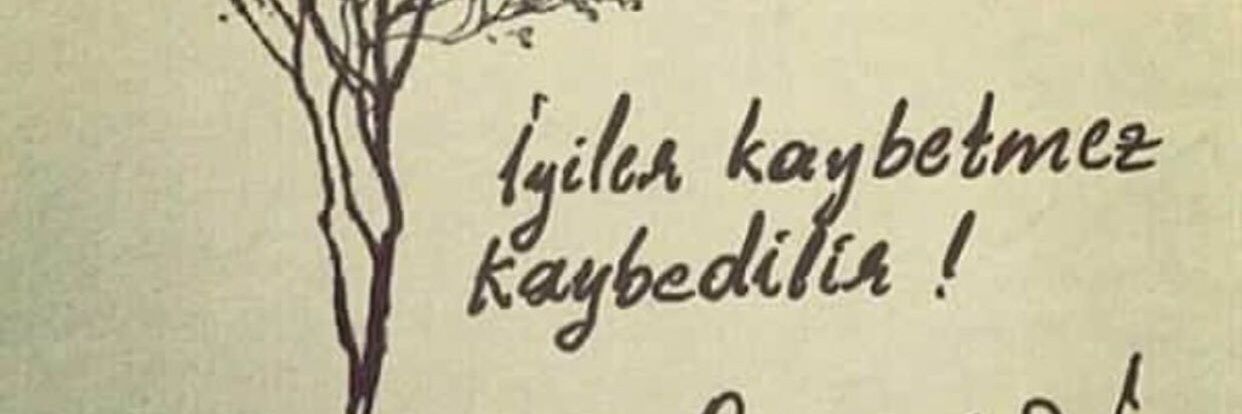 İyiler kaybetmez
kaybedilir !